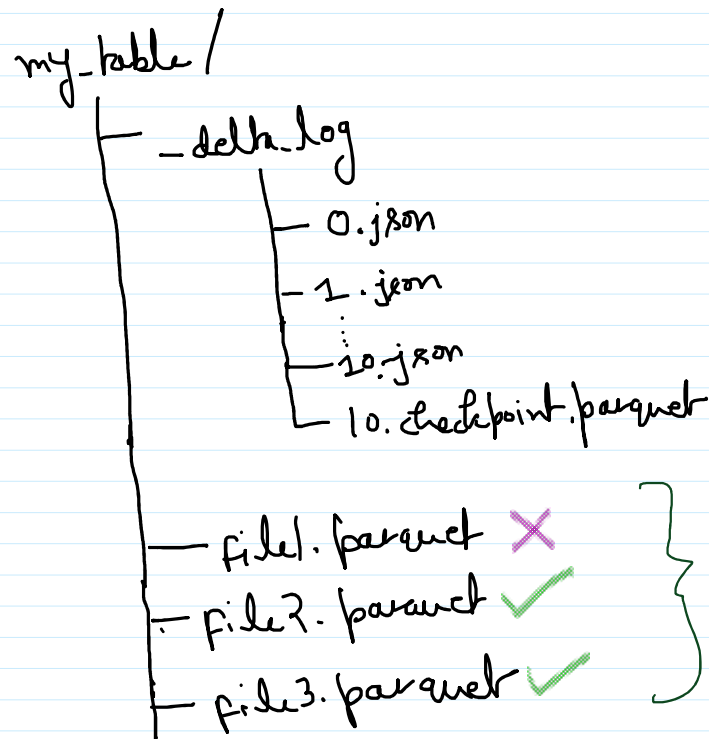 my_table/
_delta_log
0.json
1.json
10.json
10.checkpoint.parquet
file1.parquet
file2.parquet
file3.parquet